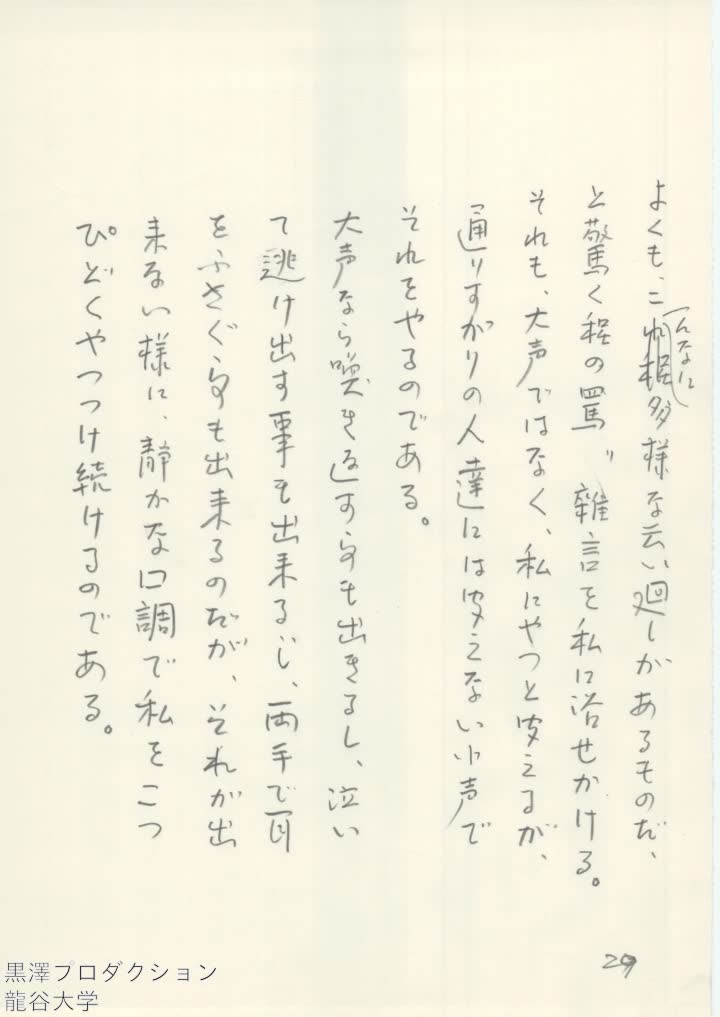 よくも、こんなに多様な云い廻しがあるものだ、
と驚く程の罵〃雑言を私に浴せかける。
それも、大声ではなく、私にやっと聞えるが、
通りすがりの人達には聞えない小声で
それをやるのである。
大声なら喚き返す事も出きるし、泣い
て逃け出す事も出来るし、両手で耳
をふさぐ事も出来るのだが、それが出
来ない様に、静かな口調で私をこっ
ぴどくやっつけ続けるのである。
29
黒澤プロダクション
龍谷大学